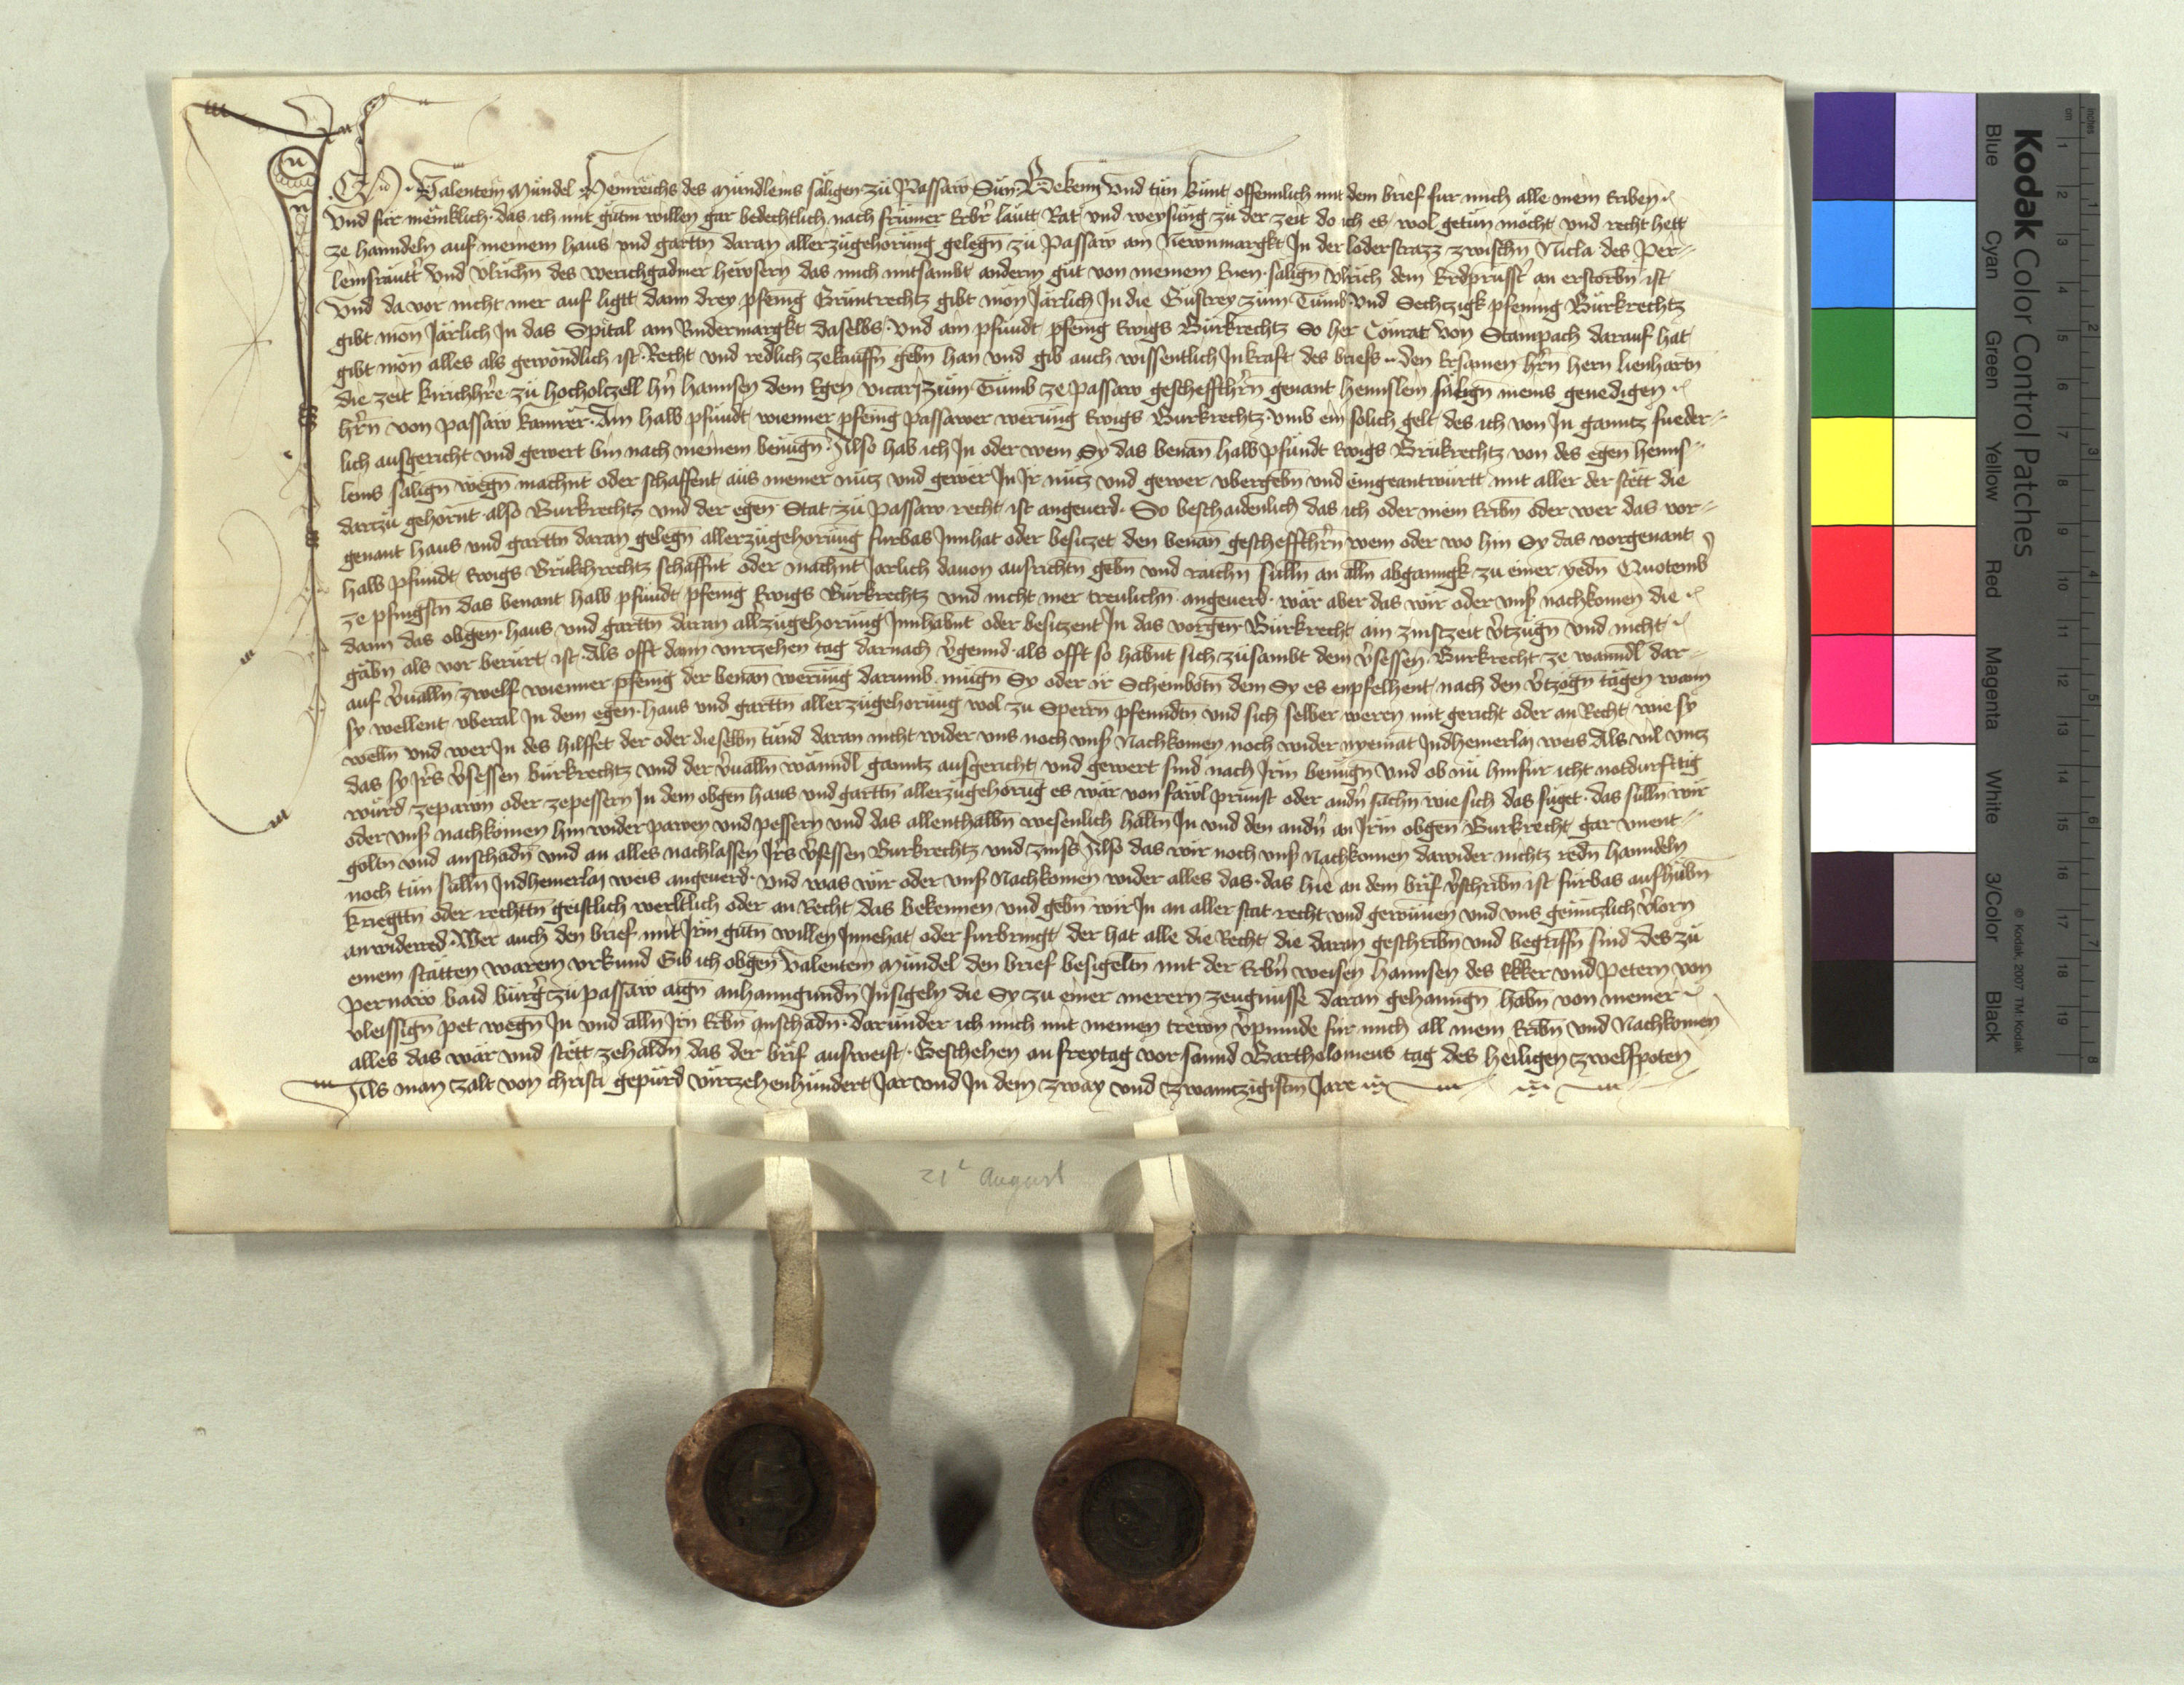 Ich Valentein Mündel Heinreichs des Mündleins säligen zu Passaw Sun Bekenn vnd tun kunt offennlich mit dem brief fur mich alle mein Erben
Vnd für mëinklich das ich mit gutm willen gar bedechtlich nach frumer Erbr läutt Rat vnd weysung zu der zeit do ich es wol getun mocht vnd recht hett
ze hanndeln auf meinem haus vnd gartn daran allerzugehorung gelegn zu Passaw am Newnmargkt In der loderstrazz zwischn Nicla des Per-
leinsräutr vnd Vlrichn des werichgadmer hewsern das mich mitsambt anderm gut von meinem Enen salign Vlrich dem Erdprustr an erstorbn ist
Vnd da vor nicht mer auf ligtt dann drey pfenig Gruntrechtz gibt mon Järlich In die Gustrey zum Tumb Vnd Sechczigk pfening Burkrechtz
gibt mon Järlich In das Spital am Rindermargkt daselbs vnd ain pfundt pfenig Ewigs Burkrechtz So her Conrat von Stampach darauf hat
gibt mon alles als gewondlich ist Recht vnd redlich zekauffn gebn han vnd gib auch wissentlich Inkraft des briefs den Ersamen hrn hern lienhartn
die zeit kirichhre zu hocholtzell hn hannsen dem Egen vicari zum Tumb ze Passaw gescheffthrn genant hennslein säligen meins genedigen
hrn von passaw kamrer Ain halb pfundt wienner pfenig passawer werung Ewigs Burkrechtz vmb ein solich gelt des ich von In ganntz fueder-
lich ausgericht vnd gewert bin nach meinem benugn Also hab ich In oder wem Sy das benan halb pfundt Ewigs Brukrechtz von des egen henns-
leins sälign wegn machnt oder schaffent aus meiner nutz vnd gewer In Ir nutz vnd gewer vbergebn vnd eingeantwurtt mit aller der stett die
dartzu gehörnt also Burkrechtz vnd der egen Stat zu Passaw recht ist angeuerd So beschaidenlich das ich oder mein Eribn oder wer das vor-
genant haus vnd garttn daran gelegn allerzugehorung furbas Innhat oder besiczet den benan gescheffthrn wem oder wo hin Sy das vorgenant
halb pfundt Ewigs Brukhrechtz schaffnt oder machnt Jarlich dauon ausrichtn gebn vnd raichn sulln an alln abganngk zu einer yedn Quotemb
ze pfingstn das benant halb pfundt pfenig Ewigs Burkrechtz vnd nicht mer treulichn angeuerd wär aber das wir oder vnsr nachkomen die
dann das obgen haus vnd garttn daran allrzugehorung Innhabnt oder besiczent In das vorgen Burkrecht ain zinszeit vrtzugn vnd nicht
gäbn als vor berurt ist Als offt dann virtzehen tag darnach vrgennd als offt so habnt sich zusambt dem vrsessen Burkrecht ze wanndl dar-
auf vrualln zwelf wienner pfenig der benan werung darumb mugn Sy oder ir Scheinbotn dem Sy es enpfelhent nach den vrtzogn tägen wann
sy wellent vberal In dem egen haus vnd garttn allerzugehorung wol zu Sperrn pfenndtn vnd sich selber weren mit gericht oder an Recht wie sy
welln vnd wer In des hilffet der oder dieselbn tund daran nicht wider vns noch vnsr Nachkomen noch wider nyemat Indhemerlay weis Als vil vntz
das sy Irs vrsessen burkrechtz vnd der vrualln wanndl ganntz ausgericht vnd gewert sind nach Irm benugn Vnd ob nu hinfur icht notdurfftig
wurd zepawn oder zepessern In dem obgen haus vnd garttn allerzugehorug es wär von fäwl prunst oder andn sachn wie sich das fuget das sulln wir
oder vnsr nachkomen hin wider pawen vnd pessern vnd das allenthalbn wesenlich haltn In vnd den andn an Irm obgen Burkrecht gar vnent-
goltn vnd anschadn vnd an alles nachlassen Irs vrsessen Burkrechtz vnd zinses Also das wir noch vnsr Nachkomen dawider nichtz redn hanndeln
noch tun sulln Indhemerlay weis angeuerd vnd was wir oder vnsr Nachkomen wider alles das das hie an dem brif vrschribn ist furbas aufhubn
kriegttn oder rechttn geistlich werltlich oder an Recht das bekennen vnd gebn wir In an aller stat recht vnd gewunen vnd vns genntzlich vrlorn
anwiderred Wer auch den brief mit Irm gutn willen Innehat oder furbringt der hat alle die Recht die daran geschribn vnd begriffn sind Des zu
einem stätten waren vrkund Gib ich obgen Valentein Mündel den brief besigeltn mit der Erbn weisen hannsen des Ekker vnd Petern von
pernaw baid burgr zu passaw aign anhanngundn Insigeln die Sy zu einer merern zeugnusse daran gehanngn habn von meiner
vleissign pet wegn In vnd alln Irn Erbn anschadn darunder ich mich mit meinen trewn vrpinnde für mich all mein Eribn vnd Nachkomen
alles das wär vnd stett zehaldn das der brif ausweist Geschehen an freytag vor sannd Bartholomeus tag des heiligen zwelfpoten
Als man zalt von christi gepürd virtzehenhundert Jar vnd In dem zway vnd zwaintzigistm Jare
21t August
Kodak Color Control Patches
Blue Cyan Green Yellow Red Magenta White 3/Color Black
© Kodak, 2007 TM: Kodak
inches 1 2 3 4 5 6 7 8
cm 1 2 3 4 5 6 7 8 9 10 11 12 13 14 15 16 17 18 19